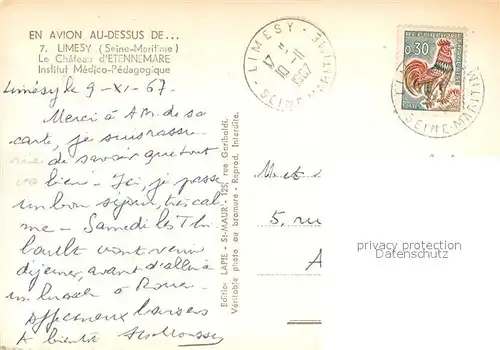 EN AVION AU-DESSUS DE...
7. LIMESY (Seine-Maritime)
Le Château d'ETENNEMARE
Institut Médico-Pédagogique
Limésy le 9-XI-67.
Merci à de sa
carte, je suis rassu-
rée de savoir que tout
va bien - Ici, je passe
un bon séjour, très cal
me - Samedi les
vont venir
déjeuner, avant d'aller à
un à Rouen
affectueux baisers
A bientôt
Edition LAPIE - St-MAUR - 125, rue Garibaldi.
Véritable photo au bromure - Reprod. Interdite.
LIMESY
17 H
10-11
1967
SEINE-MARITIME
0,30
SEINE-MARITIME
M et
5, rue
privacy protection
Datenschutz